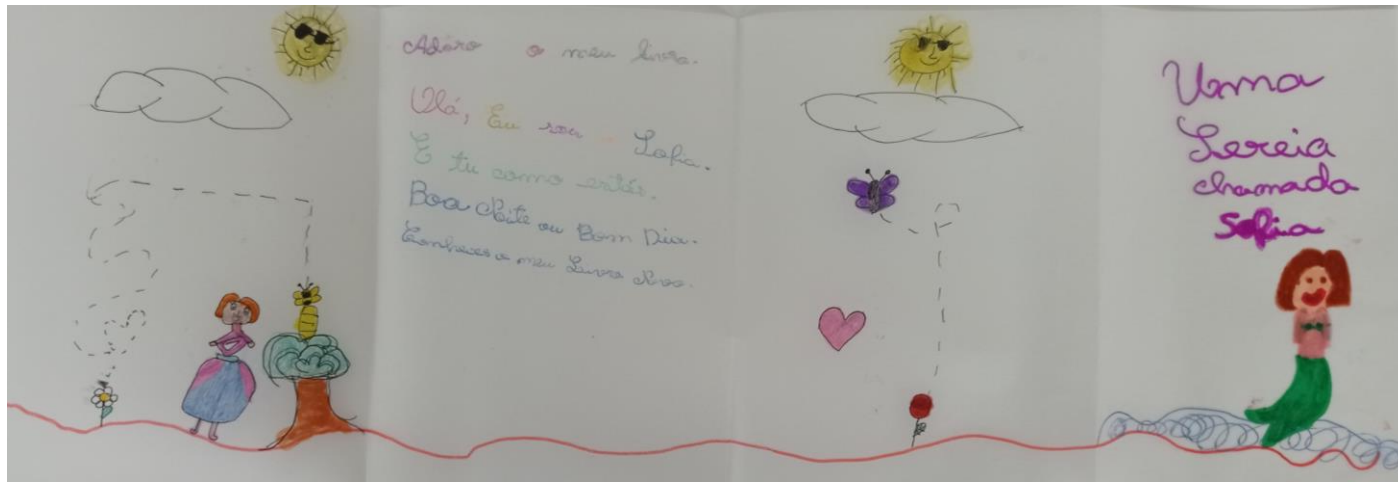 Adoro o meu livro.
Olá, Eu sou Sofia.
E tu como estás.
Boa Noite ou Bom Dia.
Conheces o meu Livro Novo.
Uma
Sereia
chamada
Sofia